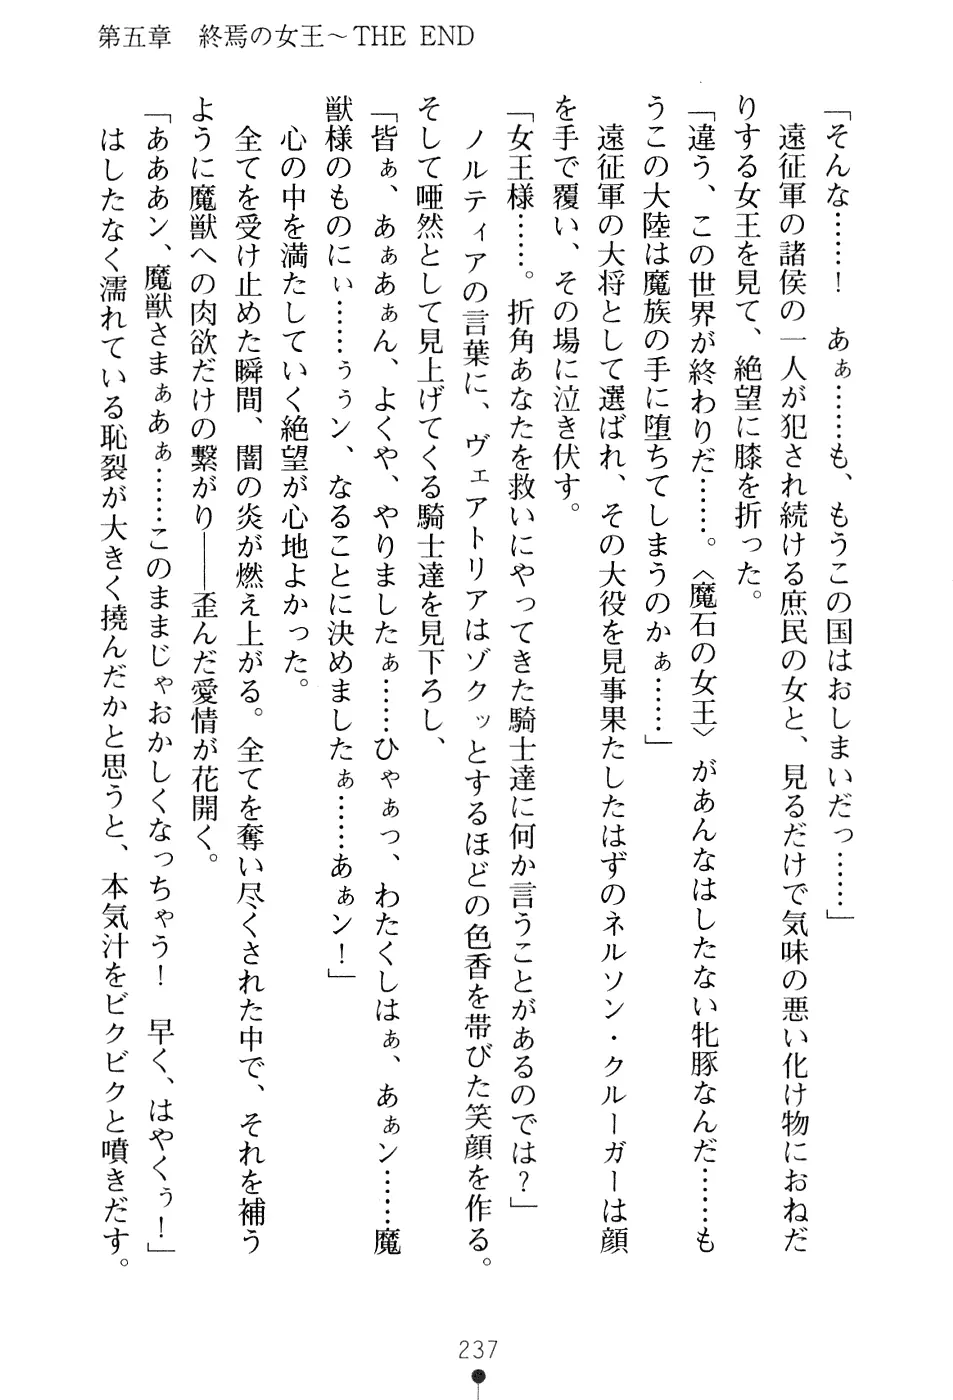 第五章　終焉の女王～THE END
「そんな……！　あぁ……も、もうこの国はおしまいだっ……」
　遠征軍の諸侯の一人が犯され続ける庶民の女と、見るだけで気味の悪い化け物におねだ
りする女王を見て、絶望に膝を折った。
「違う、この世界が終わりだ……。〈魔石の女王〉があんなはしたない牝豚なんだ……も
うこの大陸は魔族の手に堕ちてしまうのかぁ……」
　遠征軍の大将として選ばれ、その大役を見事果たしたはずのネルソン・クルーガーは顔
を手で覆い、その場に泣き伏す。
「女王様……。折角あなたを救いにやってきた騎士達に何か言うことがあるのでは？」
　ノルティアの言葉に、ヴェアトリアはゾクッとするほどの色香を帯びた笑顔を作る。
そして唖然として見上げてくる騎士達を見下ろし、
「皆ぁ、あぁあぁん、よくや、やりましたぁ……ひゃぁっ、わたくしはぁ、あぁン……魔
獣様のものにぃ……ぅぅン、なることに決めましたぁ……あぁン！」
　心の中を満たしていく絶望が心地よかった。
　全てを受け止めた瞬間、闇の炎が燃え上がる。全てを奪い尽くされた中で、それを補う
ように魔獣への肉欲だけの繋がり――歪んだ愛情が花開く。
「あああン、魔獣さまぁあぁ……このままじゃおかしくなっちゃう！　早く、はやくぅ！」
　はしたなく濡れている恥裂が大きく撓んだかと思うと、本気汁をビクビクと噴きだす。
237